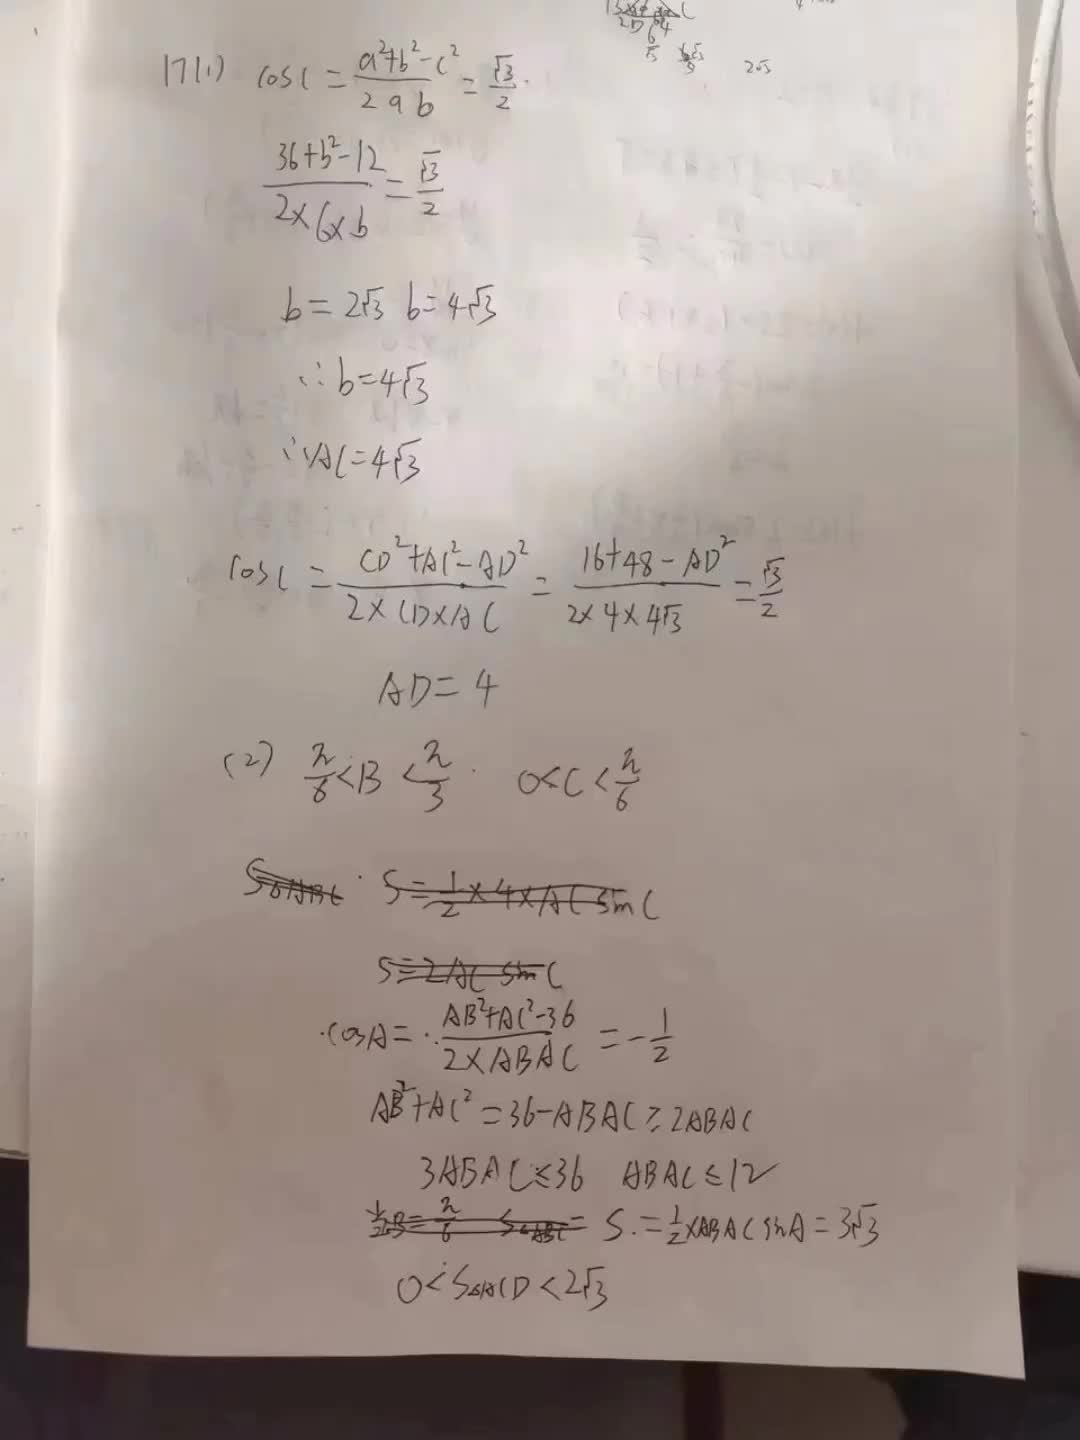 17(1) cosC = \frac{a²+b²-c²}{2ab} = \frac{√3}{2}.
\frac{36+b²-12}{2×6×b} = \frac{√3}{2}
b=2√3 b=4√3
∴b=4√3
∴AC=4√3
cosC = \frac{CD²+AC²-AD²}{2×CD×AC} = \frac{16+48-AD²}{2×4×4√3} = \frac{√3}{2}
AD=4
(2) \frac{π}{6}<B<\frac{π}{3}. 0<C<\frac{π}{6}
S△ABC. S=\frac{1}{2}×4×AC sinC
S=2AC sinC
cosA=\frac{AB²+AC²-36}{2×ABAC} = -\frac{1}{2}
AB²+AC²=36-ABAC≥2ABAC
3ABAC≤36 ABAC≤12
当B=\frac{π}{6} S△ABC= S.=\frac{1}{2}×ABAC sinA=3√3
0<S△ACD<2√3